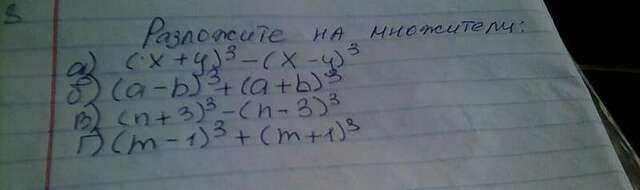 Разложите на множители:
а) (x + y)³ - (x - y)³
б) (a - b)³ + (a + b)³
в) (n + 3)³ - (n - 3)³
г) (m - 1)³ + (m + 1)³